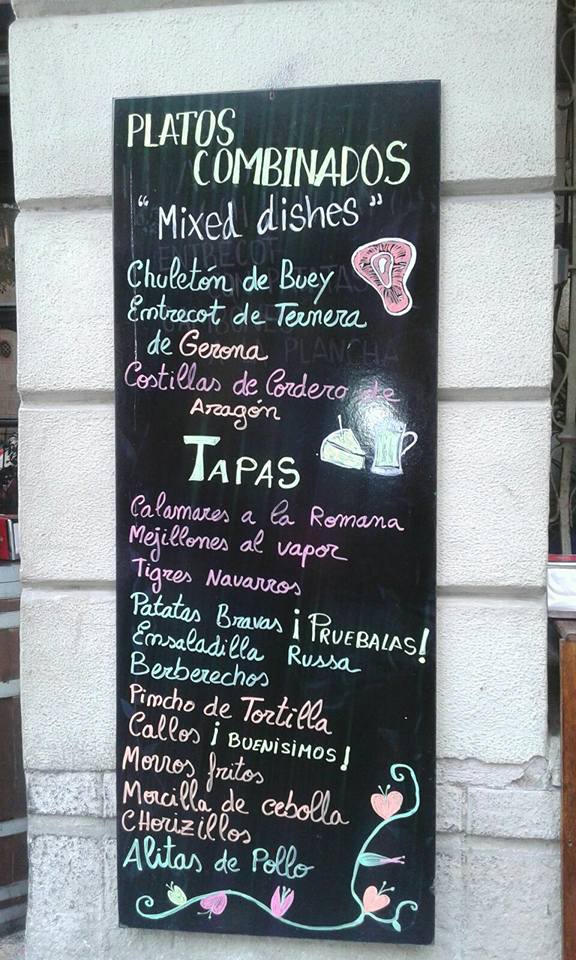 PLATOS
COMBINADOS
"Mixed dishes"
Chuletón de Buey
Entrecot de Ternera
de Gerona
Costillas de Cordero de
Aragón
TAPAS
Calamares a la Romana
Mejillones al vapor
Tigres Navarros
Patatas Bravas ¡PRUEBALAS!
Ensaladilla Russa
Berberechos
Pimcho de Tortilla
Callos ¡BUENISIMOS!
Morros fritos
Morcilla de cebolla
CHorizillos
Alitas de Pollo